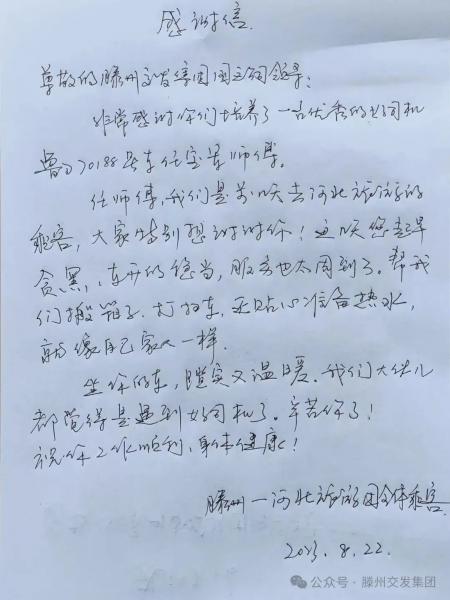 感谢信.
尊敬的滕州交发集团公司领导:
非常感谢你们培养了一名优秀的好司机
鲁D 20188号车任宝军师傅。
任师傅,我们是前几天去河北旅游的
乘客,大家特别想谢谢你!这几天您起早
贪黑,车开的稳当,服务也太周到了。帮我
们搬箱子、打扫车,还贴心准备热水,
就像自己家人一样.
坐你的车,踏实又温暖.我们大伙儿
都觉得是遇到好司机了。辛苦你了!
祝你工作顺利、身体健康!
滕州一河北旅游团全体乘客.
8.22.
公众号·滕州交发集团